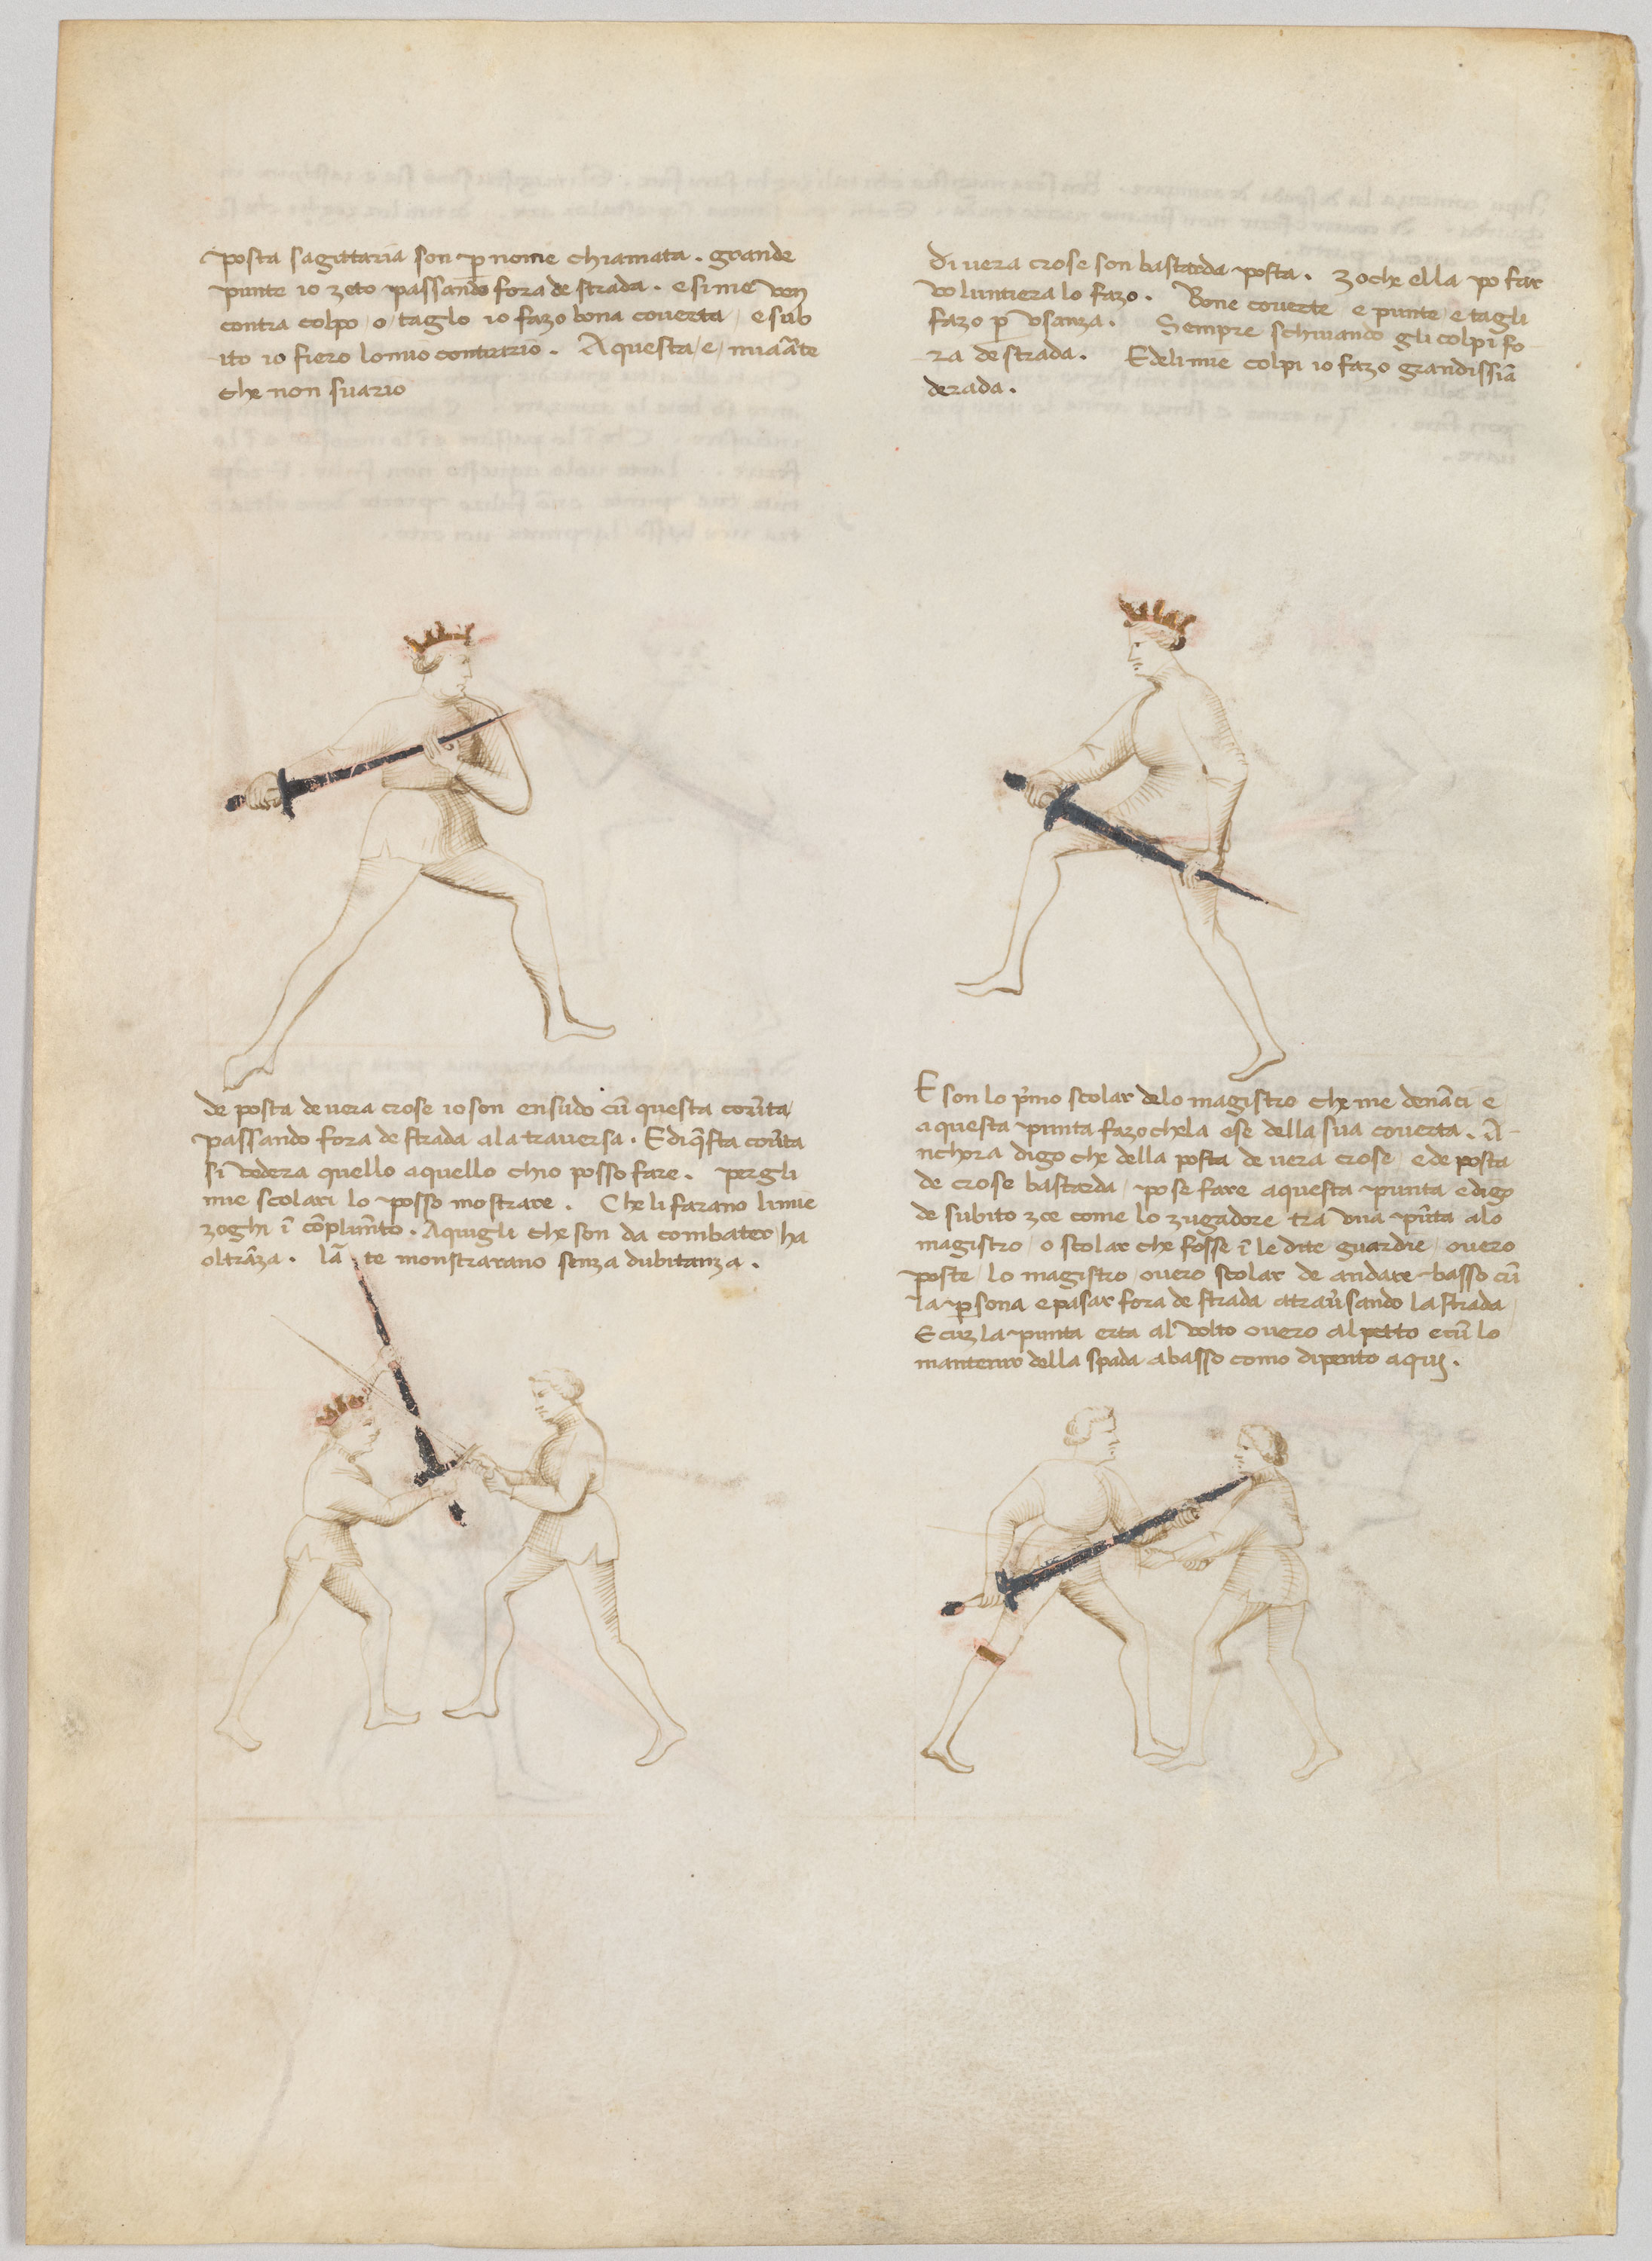 posta sagittaria son p̱ nome chiamata . grande
punte io zeto passando fora de strada . e si me ven
contra colpo / o / taglo io fazo bona coverta / e sub
ito io fiero lo mio contrario . Aquesta / e / mia ãte
che non svario
Di vera crose son bastarda posta . zo che ella po far
voluntiera lo fazo . Bone coverte e punte / e tagli
fazo p̱ usanza . Sempre schivando gli colpi fo
ra de strada . E deli mie colpi io fazo grandissiã
derada .
de posta de vera crose io son ensudo cũ questa cov̾ta
passando fora de strada ala traversa . E di q̃sta cov̾ta
si vedera quello aquello chio posso fare . per gli
mie scolari lo posso mostrare . Che li farano li mie
zoghi ĩ cõplim̃to . Aquigli che son da combater ha
oltrãza . la te monstrarano senza dubitanza .
E son lo p̾mo scolar de lo magistro che me denãci e
aquesta punta fazo che la ese della sua coverta . A
nchora digo che della posta de vera crose / e de posta
de crose bastarda / po se fare aquesta punta e digo
de subito zoe come lo zugadore tra una pũta a lo
magistro / o scolar che fosse ĩ le dite guardie / overo
poste / lo magistro / overo scolar de andare basso cũ
la p̱sona e pasar fora de strada atrav̾sando la strada
E cuz la punta erta al volto overo al petto e cũ lo
mantenir della spada abasso como dipento aqui .